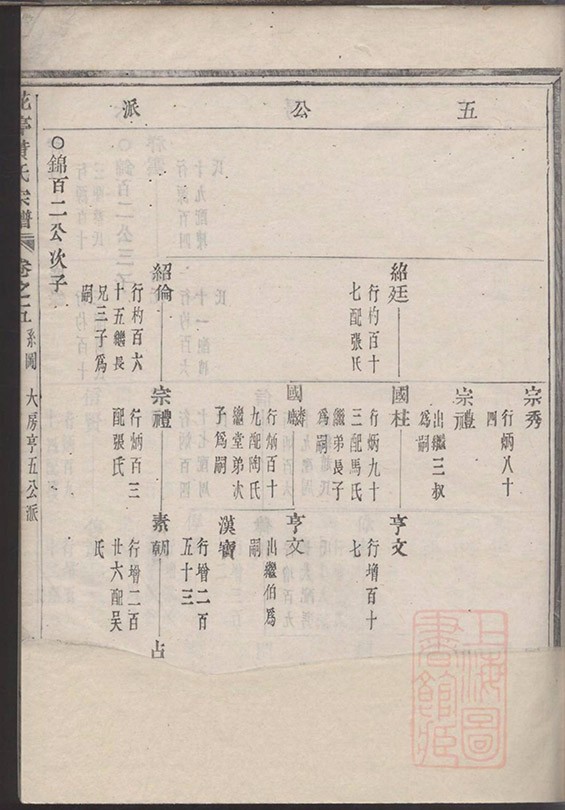 五公派
宗秀
行炳八十
四
宗禮
出繼三叔
爲嗣
紹廷
行杓百十
七配張氏
國柱
行炳九十
三配馬氏
繼弟長子
爲嗣
亨文
行增百十
七
國麟
行炳百十
九配陶氏
繼堂弟次
子爲嗣
亨文
出繼伯爲
嗣
漢寶
行增二百
五十三
紹倫
行杓百六
十五繼長
兄三子爲
嗣
宗禮
行炳百三
配張氏
素朝
行增二百
廿六配吴
氏
占
○錦百二公次子
亭黄氏宗譜 卷之五 系圖 大房亨五公派
上海圖
書館藏